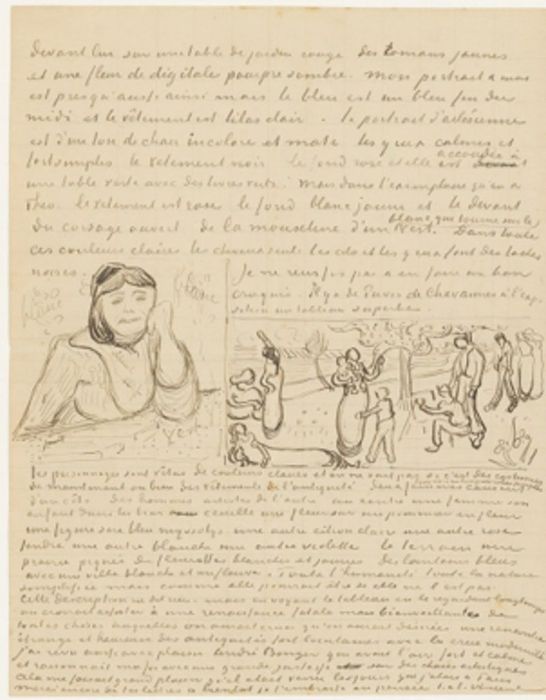 devant lui sur une table de jardin rouge des romans jaunes
et une fleur de digitale pourpre sombre. Mon portrait à moi
est presqu'aussi ainsi mais le bleu est un bleu fin du
midi et le vêtement est lilas clair. le portrait d'arlésienne
est d'un ton de chair incolore et mate les yeux calmes et
fort simples le vêtement noir le fond rose et elle est accoudée à
une table verte avec des livres verts. Mais dans l'exemplaire qu'en a
Theo. le vêtement est rose le fond blanc jaune et le devant
du corsage ouvert de la mousseline d'un blanc qui tourne sur le vert. Dans toutes
ces couleurs claires les cheveux seuls les cils et les yeux font des taches
noires.
Je ne reussis pas a en faire un bon
croquis. Il y a de Puvis de Chavannes à l'exposition un tableau superbe
blanc
vert
les personnages sont vêtus de couleurs claires et on ne sait pas si c'est des costumes
de maintenant ou bien des vêtements de l'antiquité
d'un côté des hommes artistes de l'autre au centre une femme son
enfant dans les bras cueille une fleur sur un pommier en fleur
une figure sera bleu myosotys une autre citron clair une autre rose
tendre une autre blanche une autre violette le terrain une
prairie piquée de fleurettes blanches et jaunes des lointains bleus
avec une ville blanche et un fleuve. toute l'humanité toute la nature
simplifiée mais comme elle pourrait etre si elle ne l'est pas.
Cette description ne dit rien: mais en voyant le tableau en le regardant longtemps
on croirait assister à une renaissance totale mais bienveillante de
toutes choses auxquelles on aurait cru qu'on aurait désirées une rencontre
étrange et heureuse des antiquités fort lointaines avec la crue modernité
j'ai revu aussi avec plaisir André Bonger qui avait l'air fort et calme
et raisonnait ma foi avec une grande justesse sur des choses artistiques